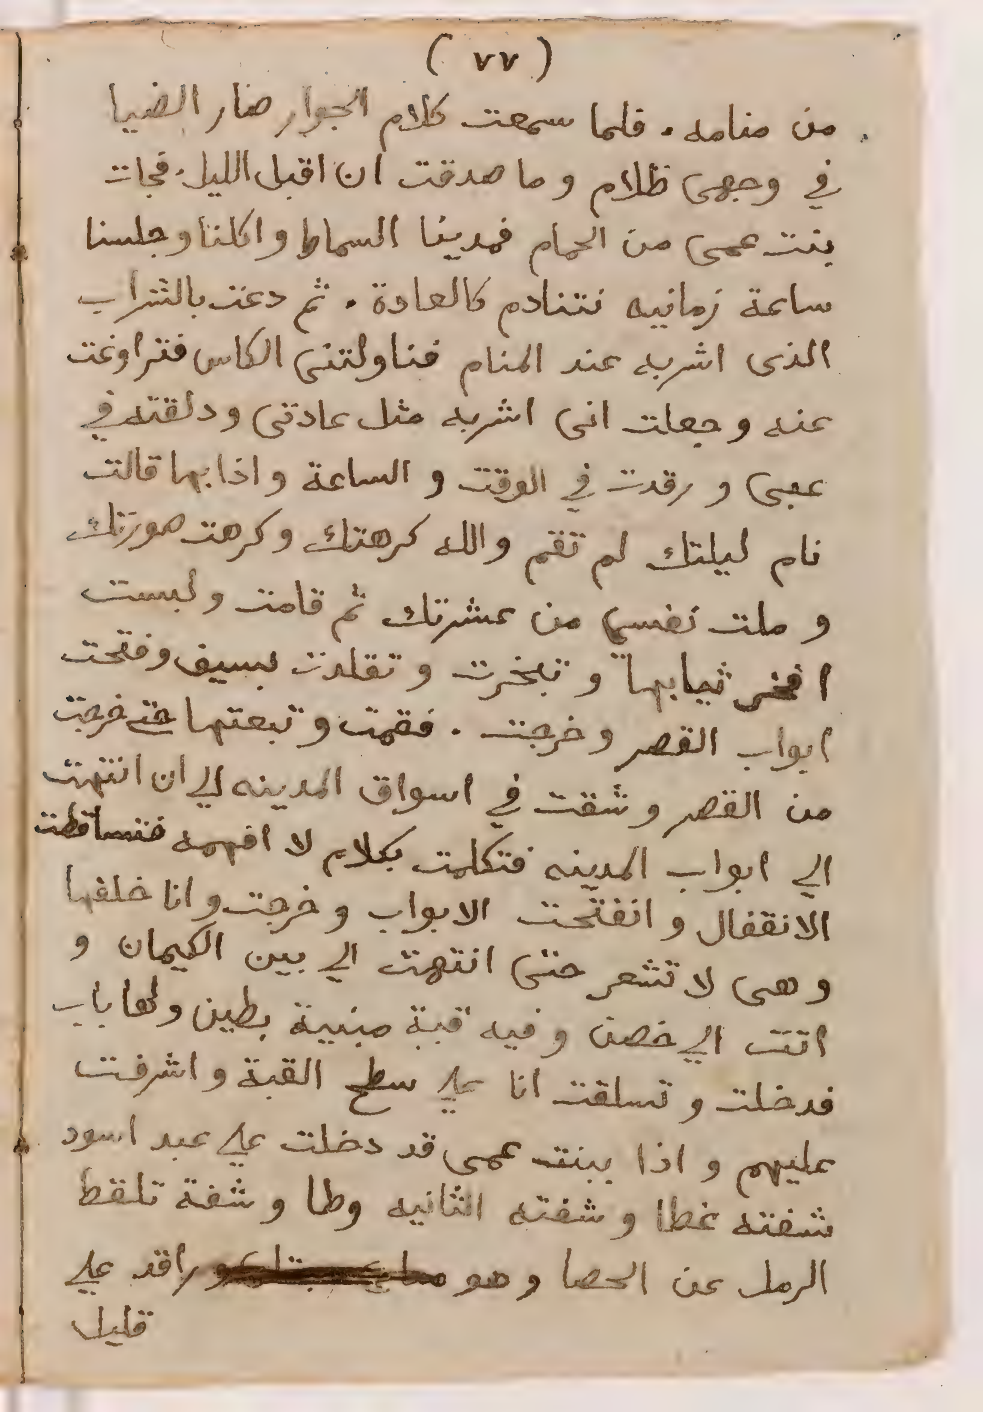 ( ٧٧ )
من منامه . فلما سمعت كلام الجوار صار الضيا
في وجهى ظلام وما صدقت ان اقبل الليل . فجات
بنت عمى من الحمام فمدينا السماط واكلنا وجلسنا
ساعة زمانيه نتنادم كالعادة . ثم دعت بالشراب
الذى اشربه عند المنام فناولتنى الكاس فتراوغت
عنه وجعلت انى اشربه مثل عادتى ودلقته في
عبى ورقدت في الوقت والساعة واذا بها قالت
نام ليلتك لم تقم والله كرهتك وكرهت صورتك
وملت نفسي من عشرتك ثم قامت ولبست
افخر ثيابها وتبخرت وتقلدت بسيف وفتحت
ابواب القصر وخرجت . فقمت وتبعتها حتى خرجت
من القصر وشقت في اسواق المدينه الي ان انتهت
الي ابواب المدينه فتكلمت بكلام لا افهمه فتساقطت
الانقفال وانفتحت الابواب وخرجت وانا خلفها
وهى لا تشعر حتى انتهت الي بين الكيمان و
اتت الي خصن وفيه قبة مبنية بطين ولها باب
فدخلت وتسلقت انا علي سطح القبة واشرفت
عليهم واذا ببنت عمى قد دخلت علي عبد اسود
شفته غطا وشفته الثانيه وطا وشفة تلقط
الرمل عن الحصا وهو راقد علي
قليل